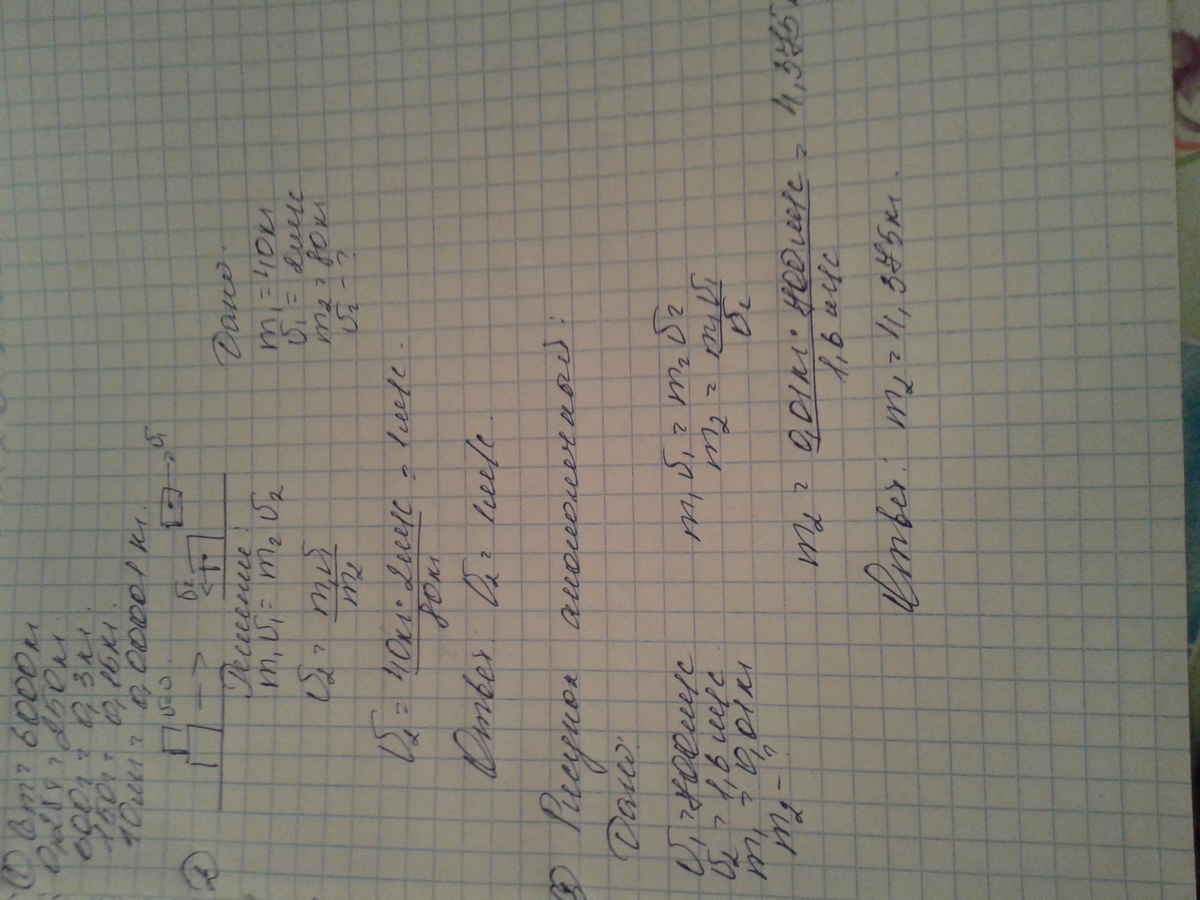 ① 6т = 6000кг
0,25т = 250кг.
300г = 0,3кг.
150г = 0,15кг.
10мг = 0,00001 кг.
②
υ=0. υ₂ υ₁
Решение:
m₁υ₁ = m₂υ₂
υ₂ = m₁υ₁/m₂
υ₂ = 40кг·2м/с/80кг = 1м/с.
Ответ: υ₂ = 1м/с.
Дано:
m₁ = 40кг
υ₁ = 2м/с
m₂ = 80кг
υ₂ - ?
③ Рисунок аналогичный:
Дано:
υ₁ = 700м/с
υ₂ = 1,6 м/с
m₁ = 0,01кг
m₂ - ?
m₁υ₁ = m₂υ₂
m₂ = m₁υ₁/υ₂
m₂ = 0,01кг·700м/с/1,6 м/с = 4,375
Ответ: m₂ = 4,375кг.